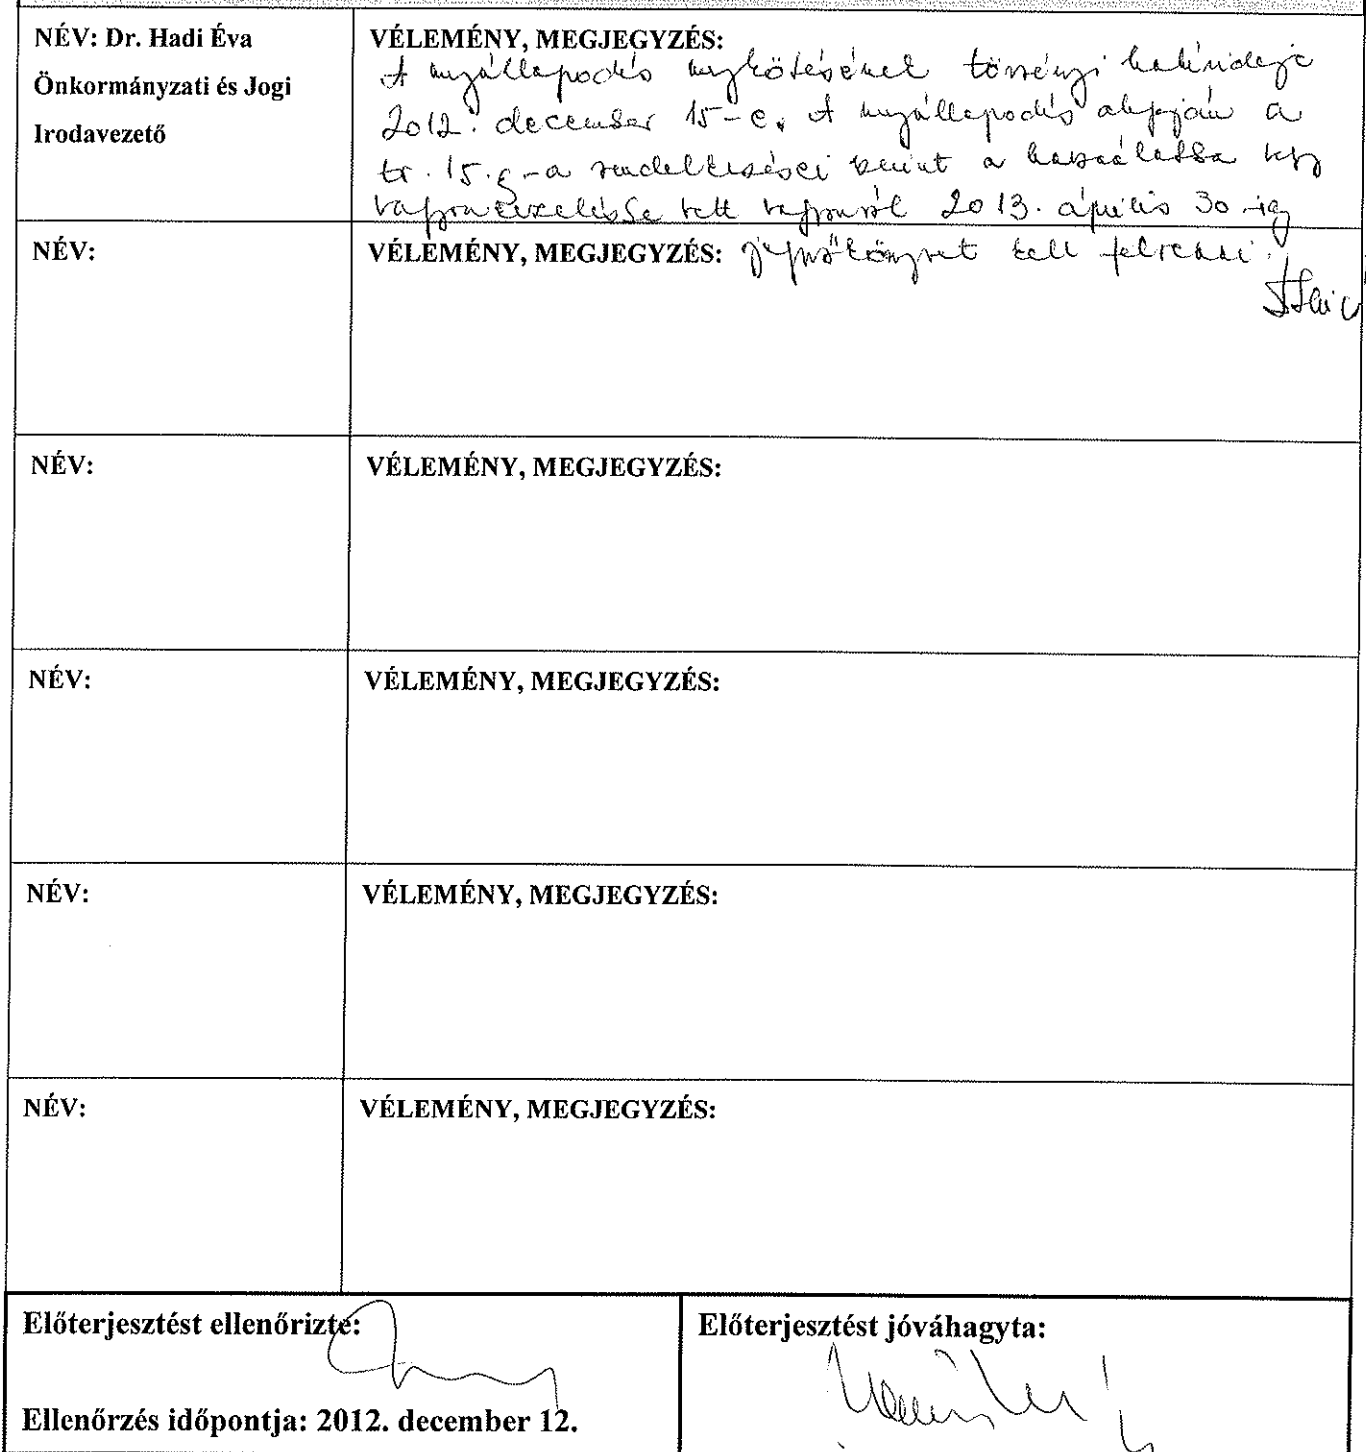 NÉV: Dr. Hadi Éva
Önkormányzati és Jogi
Irodavezető
VÉLEMÉNY, MEGJEGYZÉS:
A megállapodás megkötésének törvényi határideje
2012. december 15-e. A megállapodás alapján a
tv. 15.§-a rendelkezései szerint a használatba
vagyonkezelésbe vett vagyonról 2013. április 30-ig
NÉV:
VÉLEMÉNY, MEGJEGYZÉS: jegyzőkönyvet kell felvenni.
NÉV:
VÉLEMÉNY, MEGJEGYZÉS:
NÉV:
VÉLEMÉNY, MEGJEGYZÉS:
NÉV:
VÉLEMÉNY, MEGJEGYZÉS:
NÉV:
VÉLEMÉNY, MEGJEGYZÉS:
Előterjesztést ellenőrizte:
Ellenőrzés időpontja: 2012. december 12.
Előterjesztést jóváhagyta: